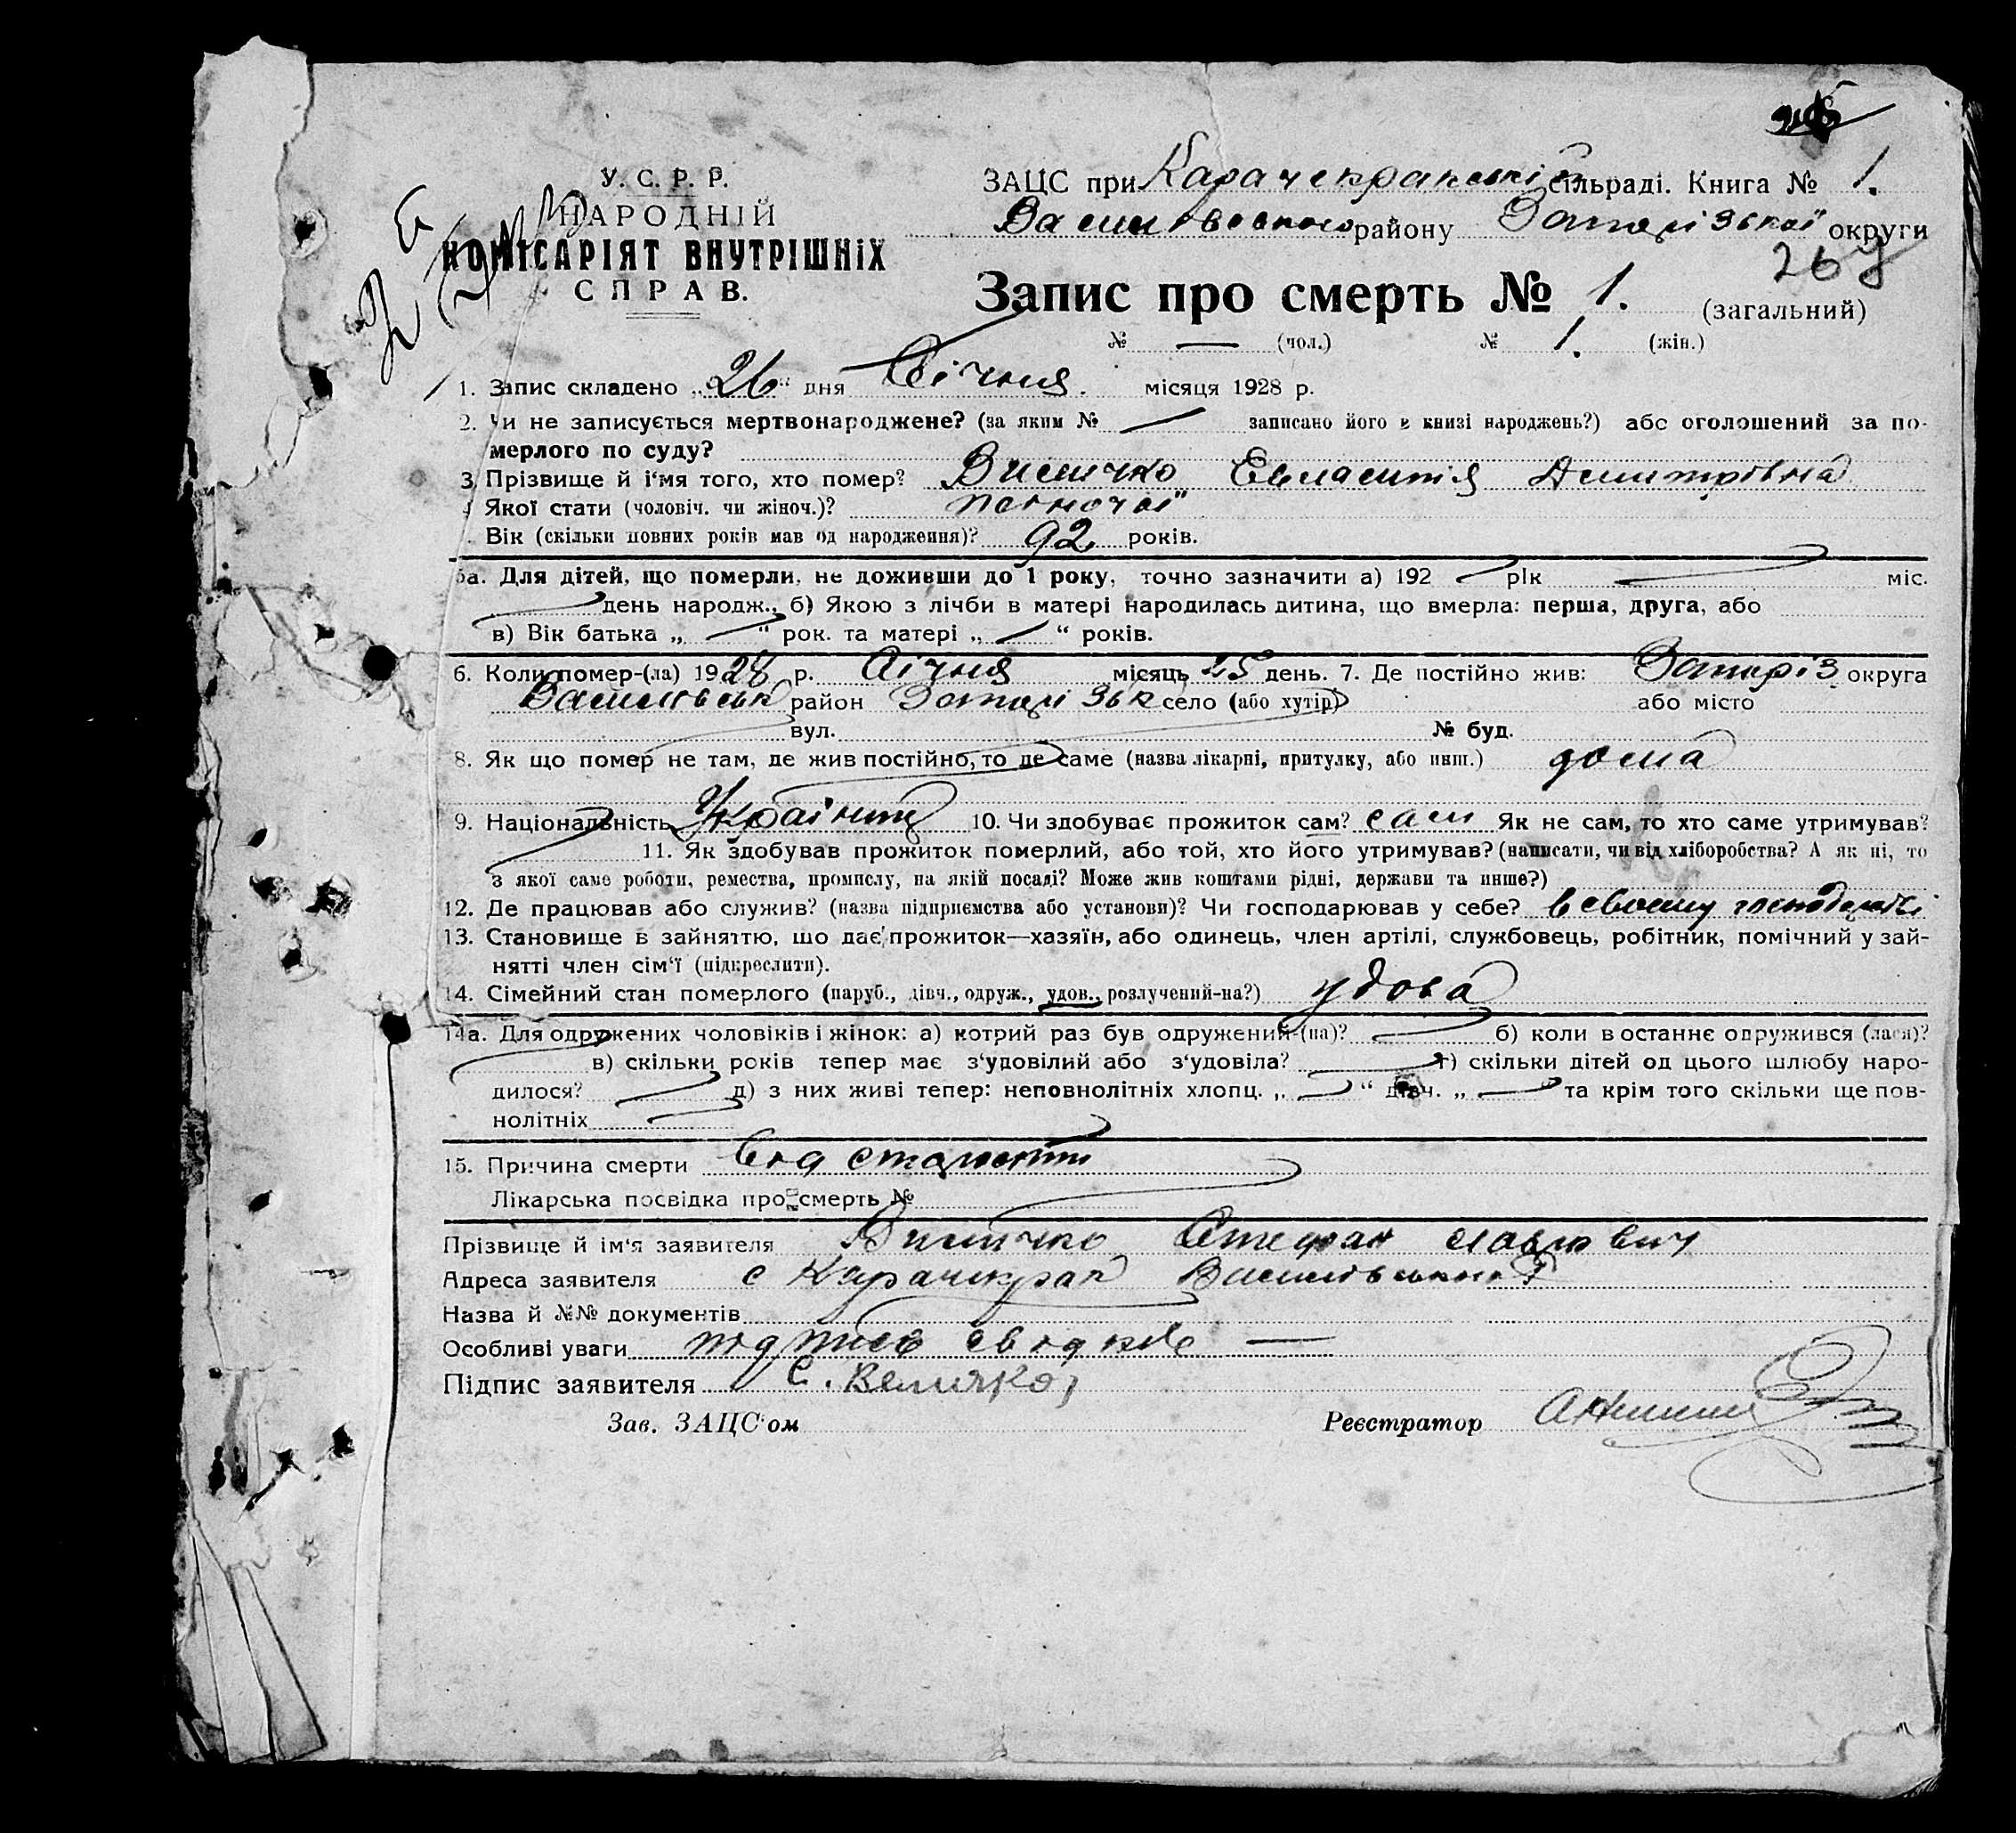 У. С. Р. Р.
НАРОДНІЙ
КОМІСАРІЯТ ВНУТРІШНІХ
СПРАВ.
ЗАЦС при Карачекракській сільраді. Книга № 1.
Василівського району Запорізької округи
26
Запис про смерть № 1. (загальний)
№ — (чол.) № 1. (жін.)
1. Запис складено „26" дня Січня місяця 1928 р.
2. Чи не записується мертвонароджене? (за яким № — записано його в книзі народжень?) або оголошений за по-
мерлого по суду?
3. Прізвище й і'мя того, хто помер? Височко Дмитрівна
Якої стати (чоловіч. чи жіноч.)?
Вік (скільки повних років мав од народження)? 92 років.
5а. Для дітей, що померли, не доживши до 1 року, точно зазначити а) 192 — рік — міс.
день народж., б) Якою з лічби в матері народилась дитина, що вмерла: перша, друга, або
в) Вік батька „ — " рок. та матері „ — " років.
6. Коли помер-(ла) 1928 р. Січня місяць 25 день. 7. Де постійно жив: Запоріз округа
Василівськ район Запорізьк село (або хутір) або місто
вул. № буд.
8. Як що помер не там, де жив постійно, то де саме (назва лікарні, притулку, або инш.) дома
9. Національність 10. Чи здобуває прожиток сам? сам Як не сам, то хто саме утримував?
11. Як здобував прожиток померлий, або той, хто його утримував? (написати, чи від хліборобства? А як ні, то
з якої саме роботи, ремества, промислу, на якій посаді? Може жив коштами рідні, держави та инше?)
12. Де працював або служив? (назва підприємства або установи)? Чи господарював у себе? в своему господарстві
13. Становище в зайняттю, що дає прожиток—хазяїн, або одинець, член артілі, службовець, робітник, помічний у зай-
нятті член сім'ї (підкреслити).
14. Сімейний стан померлого (паруб., дівч., одруж., удов., розлучений-на?) удова
14а. Для одружених чоловіків і жінок: а) котрий раз був одружений-(на)? б) коли в останнє одружився (лася)?
в) скільки років тепер має з'удовілий або з'удовіла? г) скільки дітей од цього шлюбу наро-
дилося? д) з них живі тепер: неповнолітніх хлопц. „ — " дівч. „ — " та крім того скільки ще пов-
нолітніх
15. Причина смерти від старости
Лікарська посвідка про смерть №
Прізвище й ім'я заявителя Степан
Адреса заявителя с Карачекрак Василівського Р
Назва й №№ документів
Особливі уваги підпись —
Підпис заявителя С. Величко
Зав. ЗАЦС'ом Реєстратор